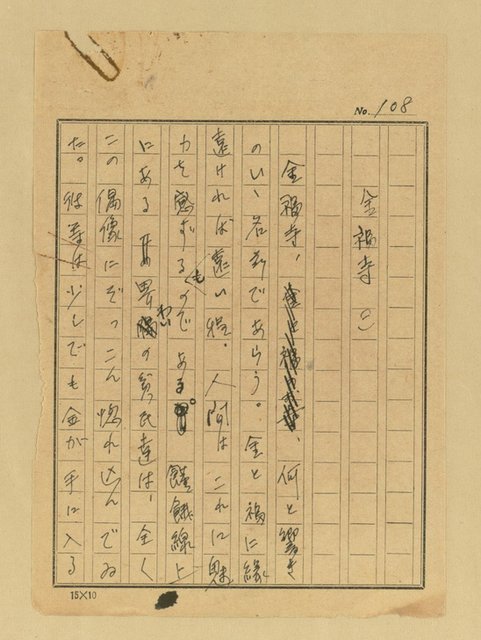 No. 108
金福寺 ○
金福寺、何と響き
のいゝ名前であらう。金と福に縁
遠ければ遠い程。人間はこれに魅
力を感ずるものである。饑餓線上
にある界わいの貧民達は、全く
この偶像にぞっこん惚れ込んでゐ
た。彼等は少しでも金が手に入る
15×10